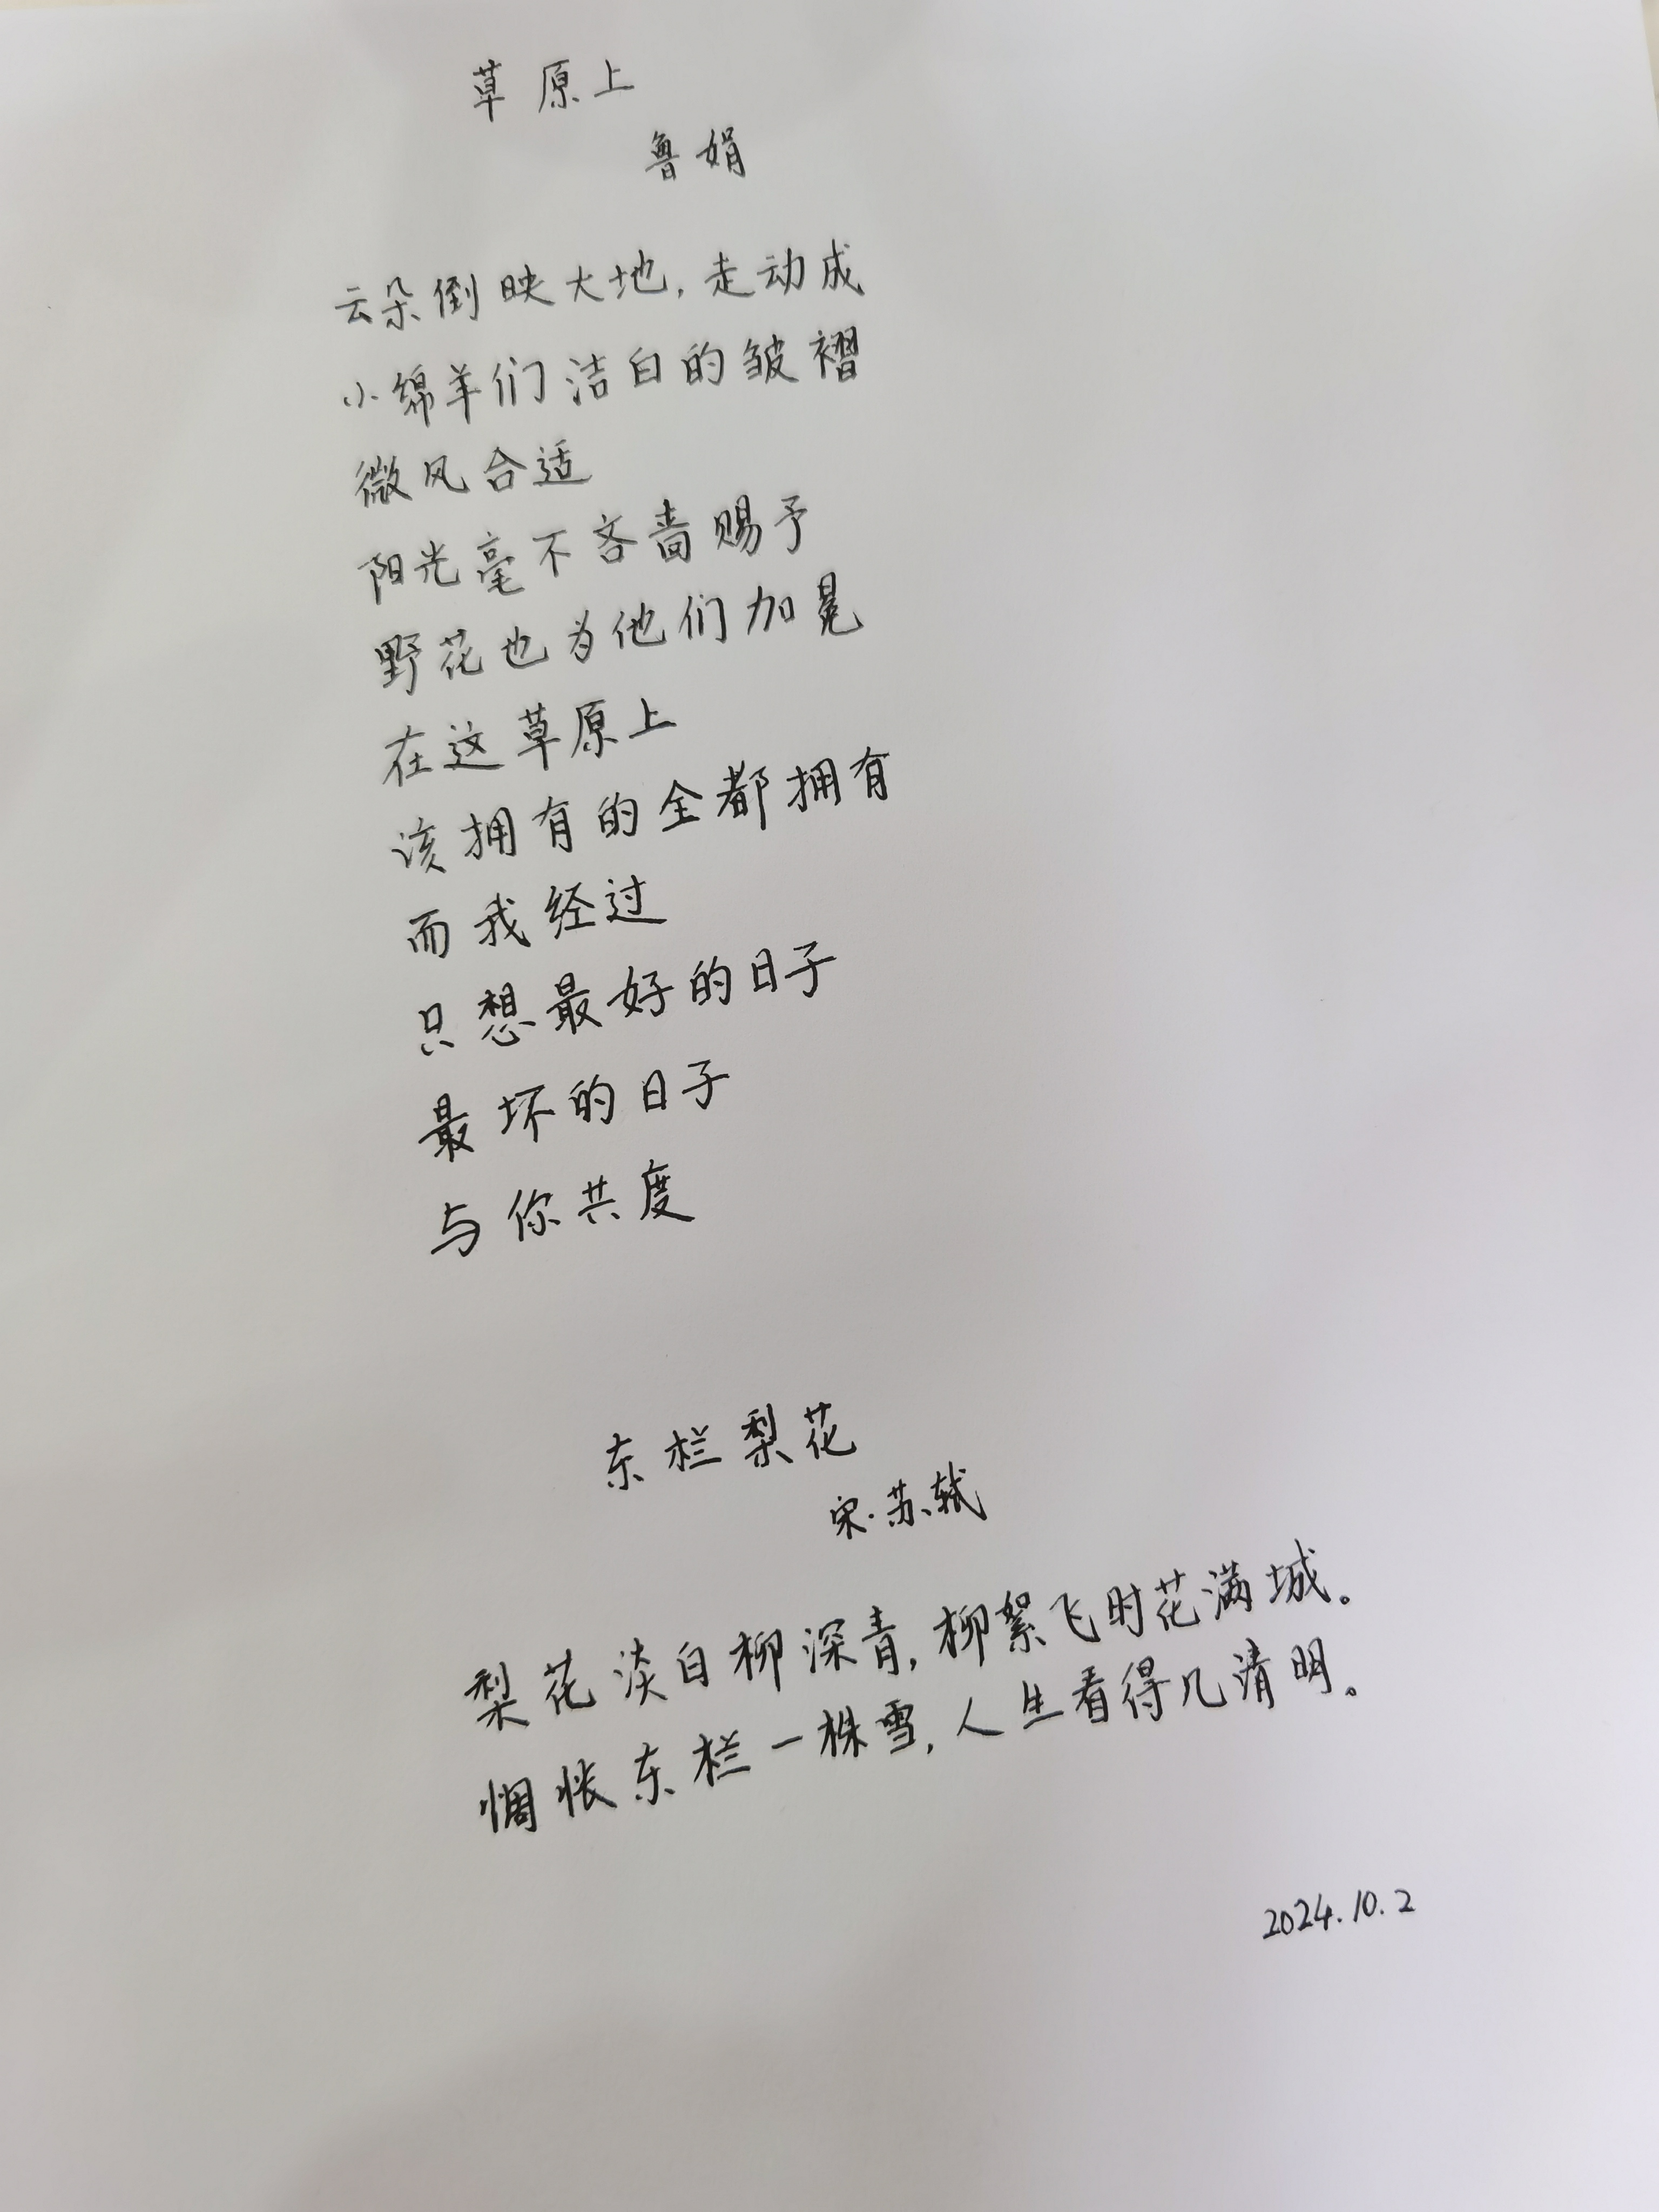 草原上
鲁娟
云朵倒映大地,走动成
小绵羊们洁白的皱褶
微风合适
阳光毫不吝啬赐予
野花也为他们加冕
在这草原上
该拥有的全都拥有
而我经过
只想最好的日子
最坏的日子
与你共度
东栏梨花
宋·苏轼
梨花淡白柳深青,柳絮飞时花满城。
惆怅东栏一株雪,人生看得几清明。
2024.10.2